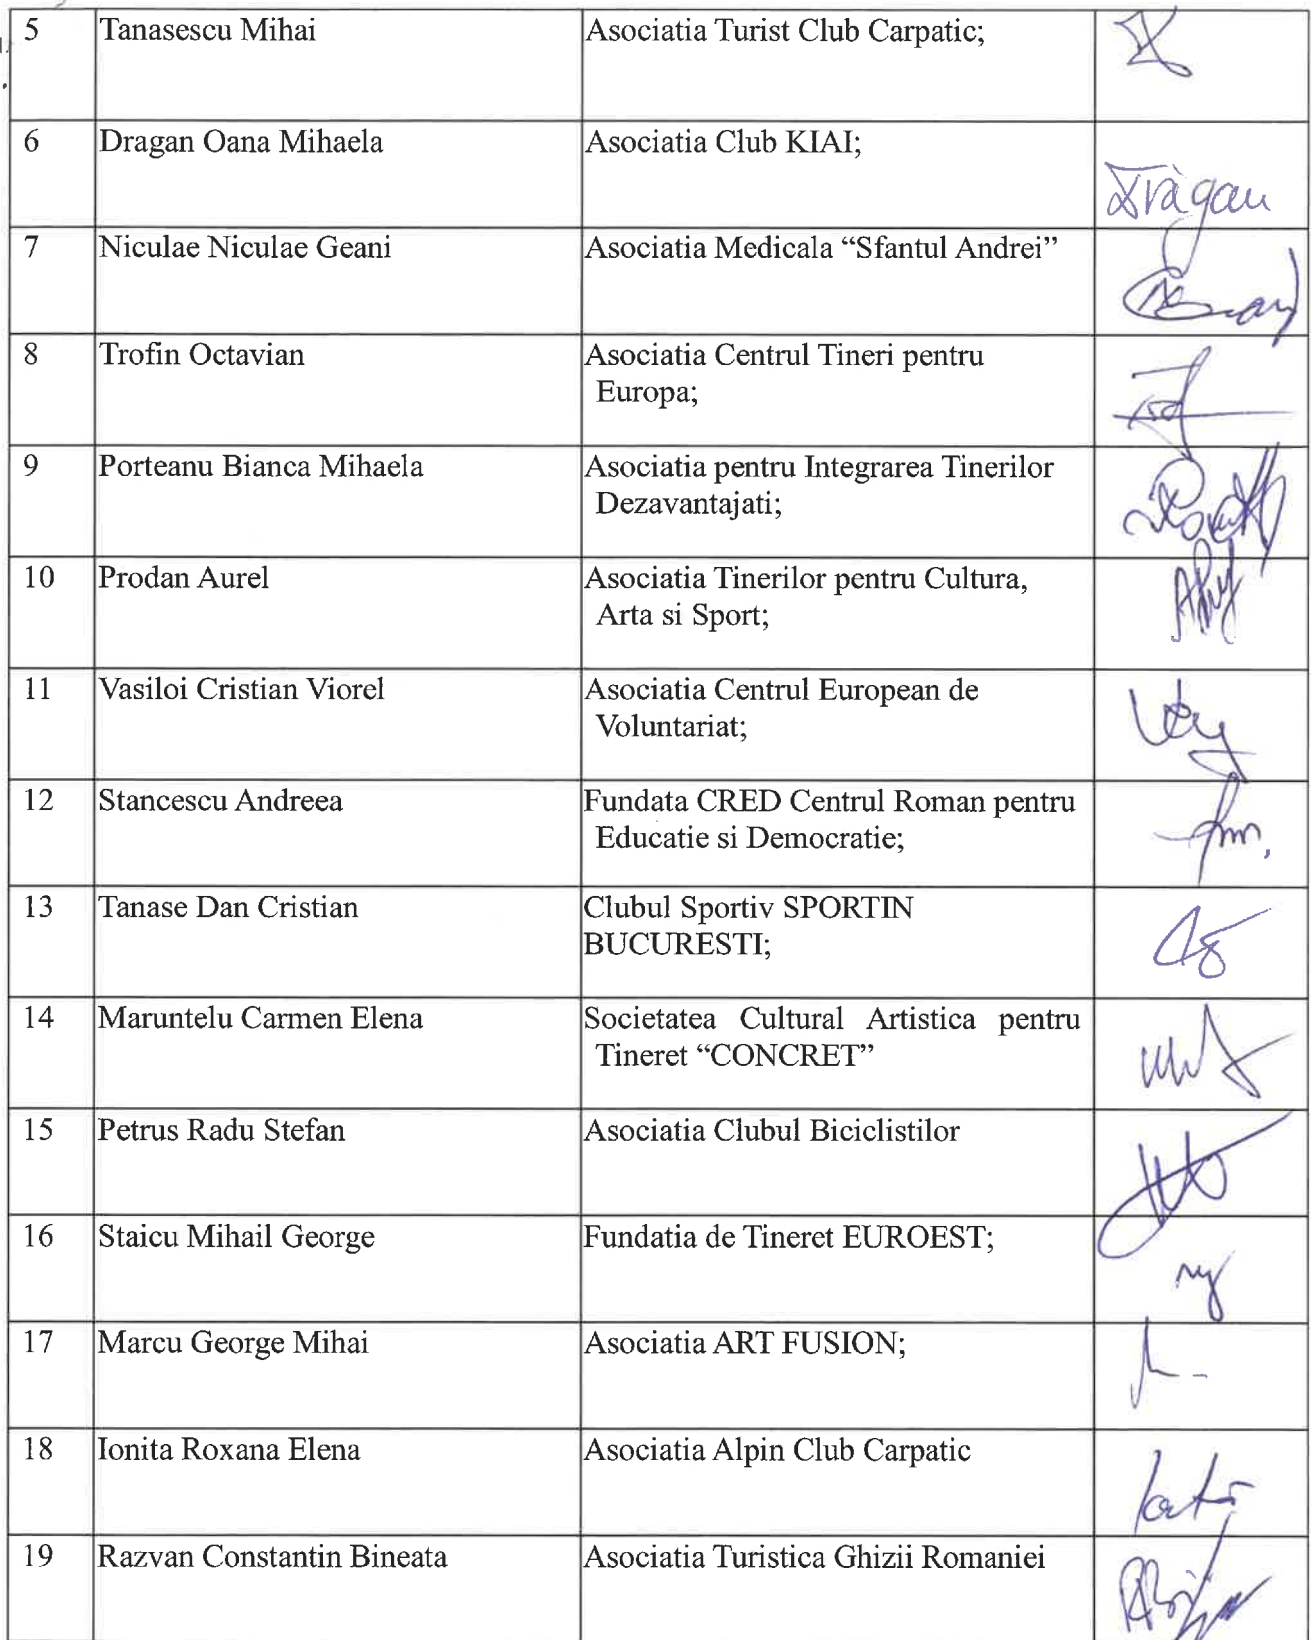 5 Tanasescu Mihai Asociatia Turist Club Carpatic;
6 Dragan Oana Mihaela Asociatia Club KIAI;
Drăgan
7 Niculae Niculae Geani Asociatia Medicala “Sfantul Andrei”
8 Trofin Octavian Asociatia Centrul Tineri pentru
Europa;
9 Porteanu Bianca Mihaela Asociatia pentru Integrarea Tinerilor
Dezavantajati;
10 Prodan Aurel Asociatia Tinerilor pentru Cultura,
Arta si Sport;
11 Vasiloi Cristian Viorel Asociatia Centrul European de
Voluntariat;
12 Stancescu Andreea Fundata CRED Centrul Roman pentru
Educatie si Democratie;
13 Tanase Dan Cristian Clubul Sportiv SPORTIN
BUCURESTI;
14 Maruntelu Carmen Elena Societatea Cultural Artistica pentru
Tineret “CONCRET”
15 Petrus Radu Stefan Asociatia Clubul Biciclistilor
16 Staicu Mihail George Fundatia de Tineret EUROEST;
17 Marcu George Mihai Asociatia ART FUSION;
18 Ionita Roxana Elena Asociatia Alpin Club Carpatic
19 Razvan Constantin Bineata Asociatia Turistica Ghizii Romaniei